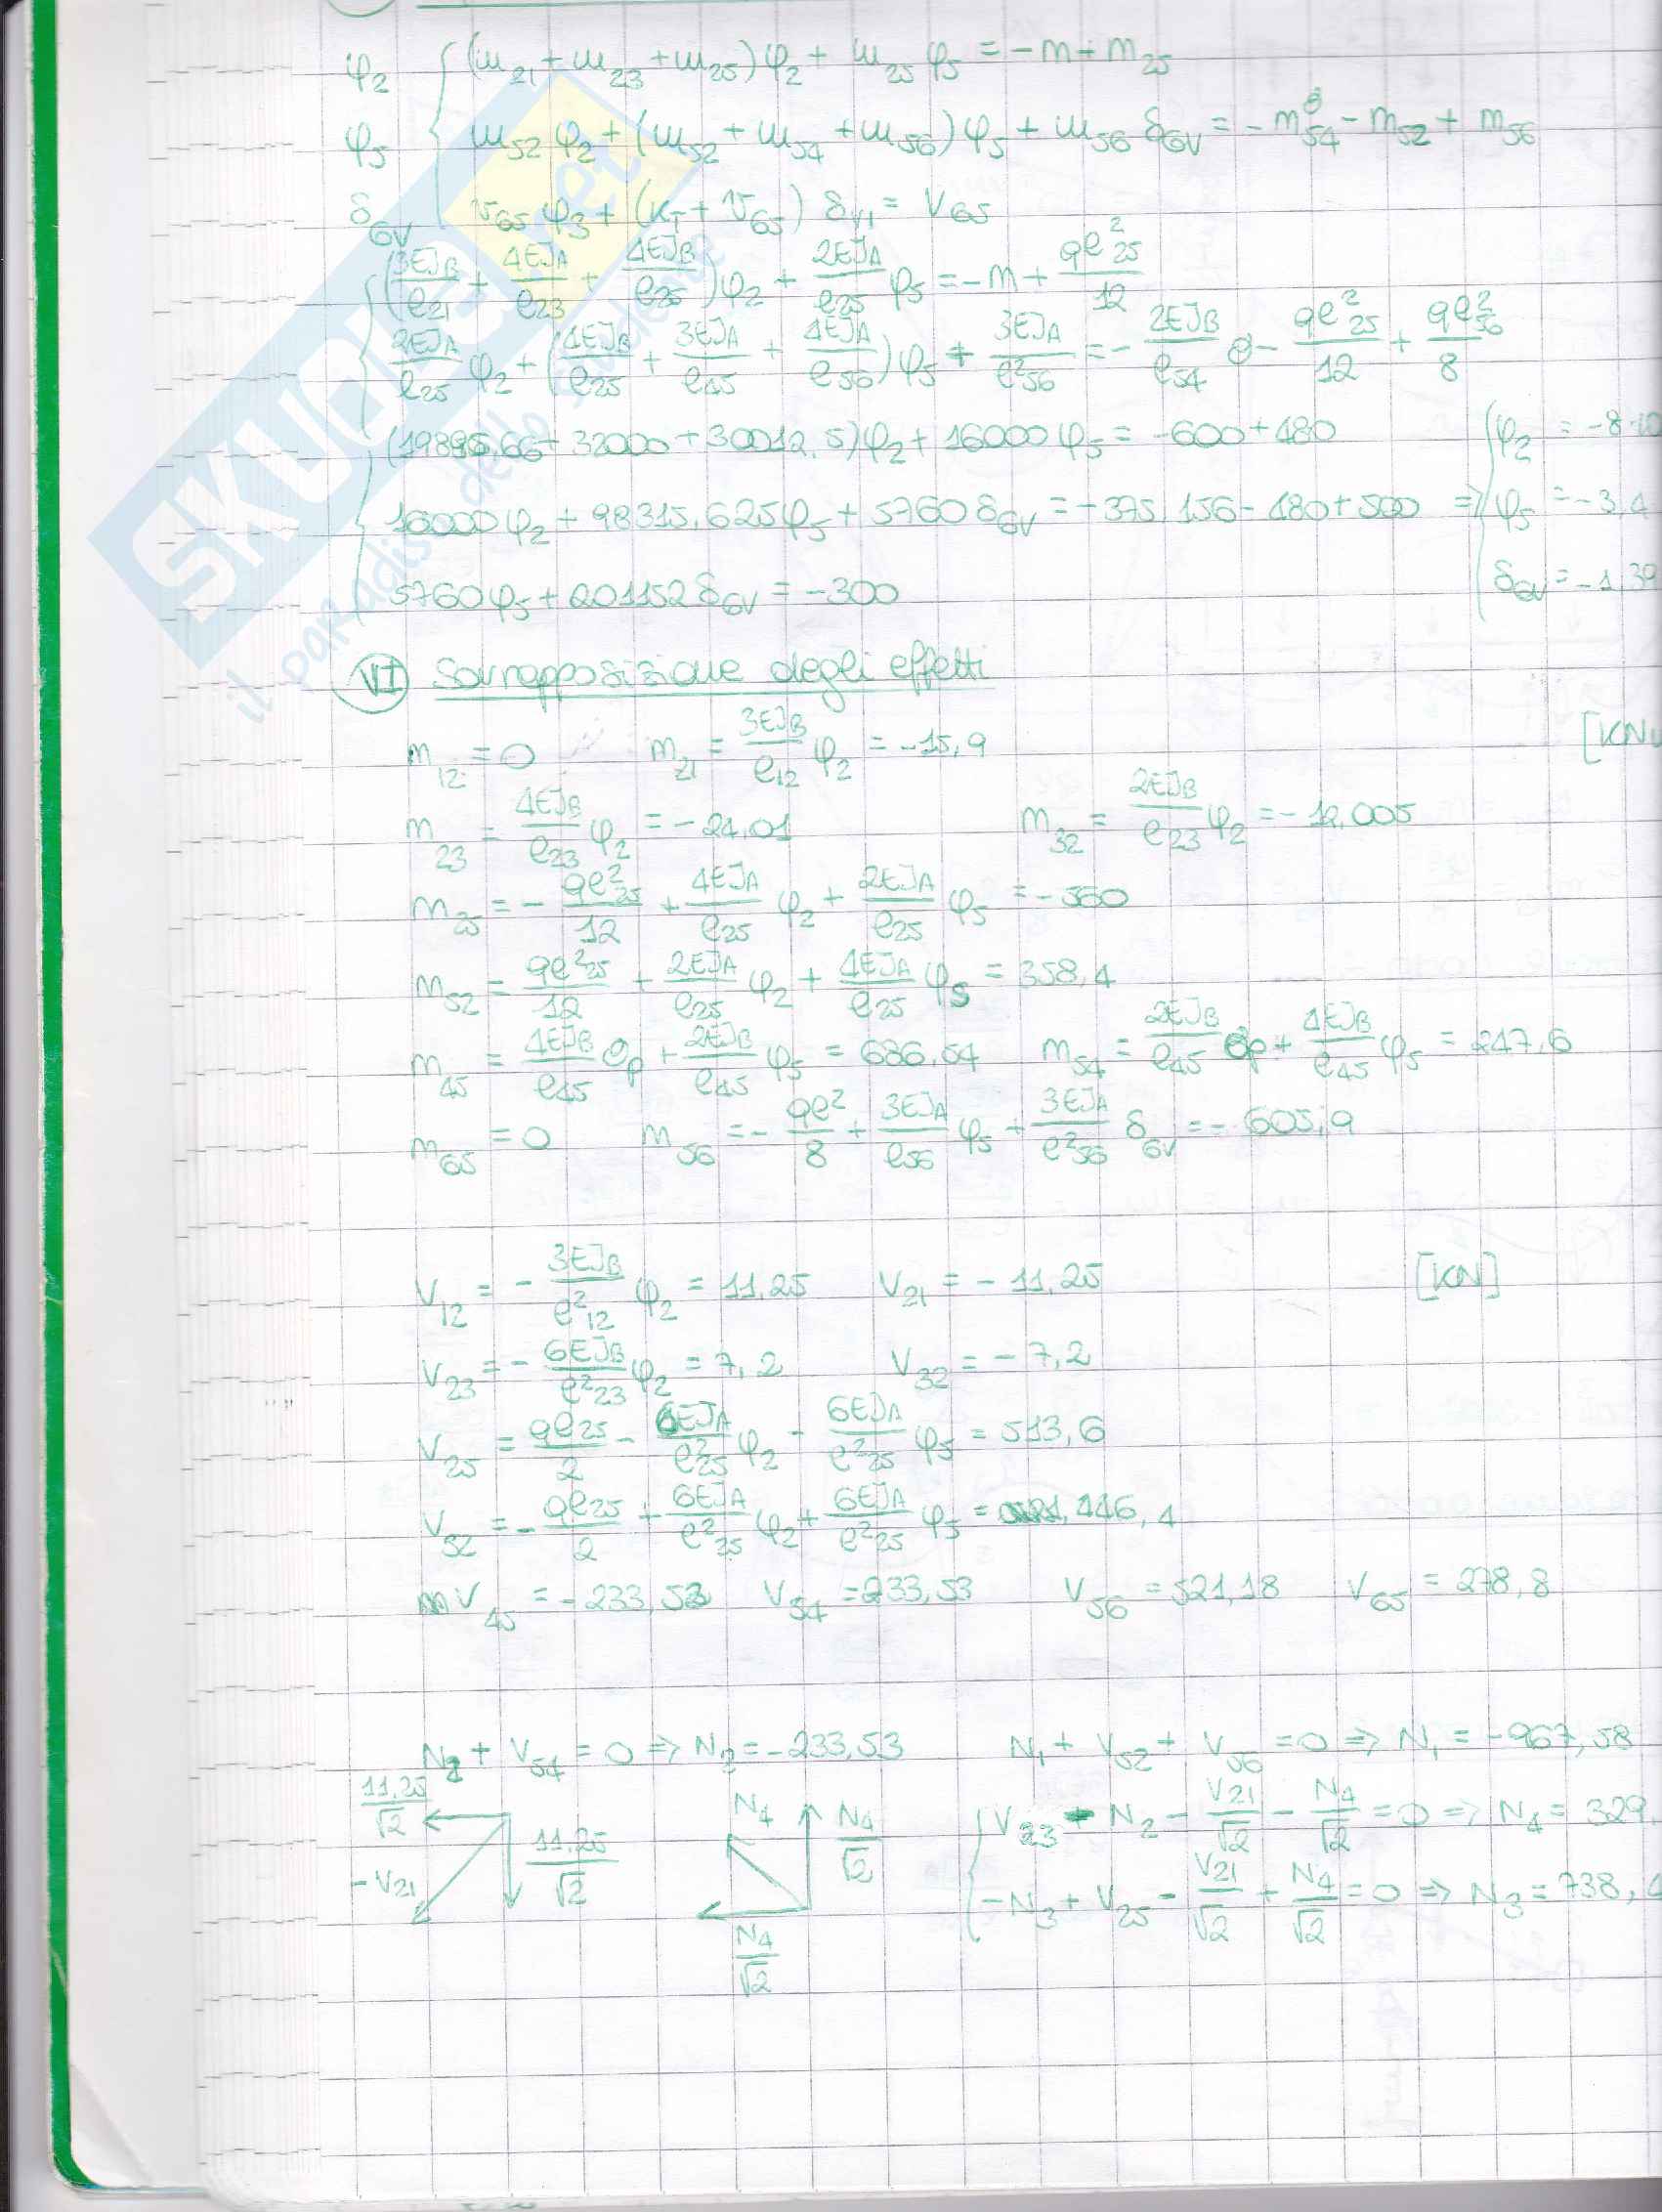 φ₂ { (m₂₁ + m₂₃ + m₂₅)φ₂ + m₂₅ φ₅ = -m - m₂₅
φ₅ m₅₂ φ₂ + (m₅₂ + m₅₄ + m₅₆)φ₅ + m₅₆ δ₆ᵥ = -m₅₄^θ - m₅₂ + m₅₆
δ₆ᵥ v₆₅ φ₃ + (K_T + v₆₅) δ_V₁ = V₆₅
(3EJ_B/ℓ₂₁ + 4EJ_A/ℓ₂₃ + 4EJ_B/ℓ₂₅)φ₂ + 2EJ_A/ℓ₂₅ φ₅ = -m + qℓ²₂₅/12
2EJ_A/ℓ₂₅ φ₂ + (4EJ_B/ℓ₂₅ + 3EJ_A/ℓ₄₅ + 4EJ_A/ℓ₅₆)φ₅ + 3EJ_A/ℓ²₅₆ = -2EJ_B/ℓ₅₄ θ - qℓ²₂₅/12 + qℓ²₅₆/8
(19895,66 + 32000 + 30012,5)φ₂ + 16000φ₅ = -600 + 480
16000φ₂ + 98315,625φ₅ + 5760δ₆ᵥ = -375,156 - 480 + 500
5760φ₅ + 201152δ₆ᵥ = -300
⇒ { φ₂ = -8·10
φ₅ = -3,4
δ₆ᵥ = -1,39
VI Sovrapposizione degli effetti
[KN
m₁₂ = 0 m₂₁ = 3EJ_B/ℓ₁₂ φ₂ = -15,9
m₂₃ = 4EJ_B/ℓ₂₃ φ₂ = -24,01 m₃₂ = 2EJ_B/ℓ₂₃ φ₂ = -12,005
m₂₅ = -qℓ²₂₅/12 + 4EJ_A/ℓ₂₅ φ₂ + 2EJ_A/ℓ₂₅ φ₅ = -560
m₅₂ = qℓ²₂₅/12 + 2EJ_A/ℓ₂₅ φ₂ + 4EJ_A/ℓ₂₅ φ₅ = 358,4
m₄₅ = 4EJ_B/ℓ₄₅ θp + 2EJ_B/ℓ₄₅ φ₅ = 686,64 m₅₄ = 2EJ_B/ℓ₄₅ θp + 4EJ_B/ℓ₄₅ φ₅ = 247,6
m₆₅ = 0 m₅₆ = -qℓ²/8 + 3EJ_A/ℓ₅₆ φ₅ + 3EJ_A/ℓ²₅₆ δ₆ᵥ = -605,9
V₁₂ = -3EJ_B/ℓ²₁₂ φ₂ = 11,25 V₂₁ = -11,25 [KN]
V₂₃ = -6EJ_B/ℓ²₂₃ φ₂ = 7,2 V₃₂ = -7,2
V₂₅ = qℓ₂₅/2 - 6EJ_A/ℓ²₂₅ φ₂ - 6EJ_A/ℓ²₂₅ φ₅ = 513,6
V₅₂ = -qℓ₂₅/2 + 6EJ_A/ℓ²₂₅ φ₂ + 6EJ_A/ℓ²₂₅ φ₅ = 446,4
V₄₅ = -233,53 V₅₄ = 233,53 V₅₆ = 521,18 V₆₅ = 278,8
N₂ + V₅₄ = 0 ⇒ N₂ = -233,53 N₁ + V₅₂ + V₅₆ = 0 ⇒ N₁ = -967,58
11,25/√2 11,25/√2 -V₂₁
N₄ N₄/√2 N₄/√2
{ V₂₃ - N₂ - V₂₁/√2 - N₄/√2 = 0 ⇒ N₄ = 329,
-N₃ + V₂₅ - V₂₁/√2 + N₄/√2 = 0 ⇒ N₃ = 738,4
SKUOLA.net
il paradiso dello studente